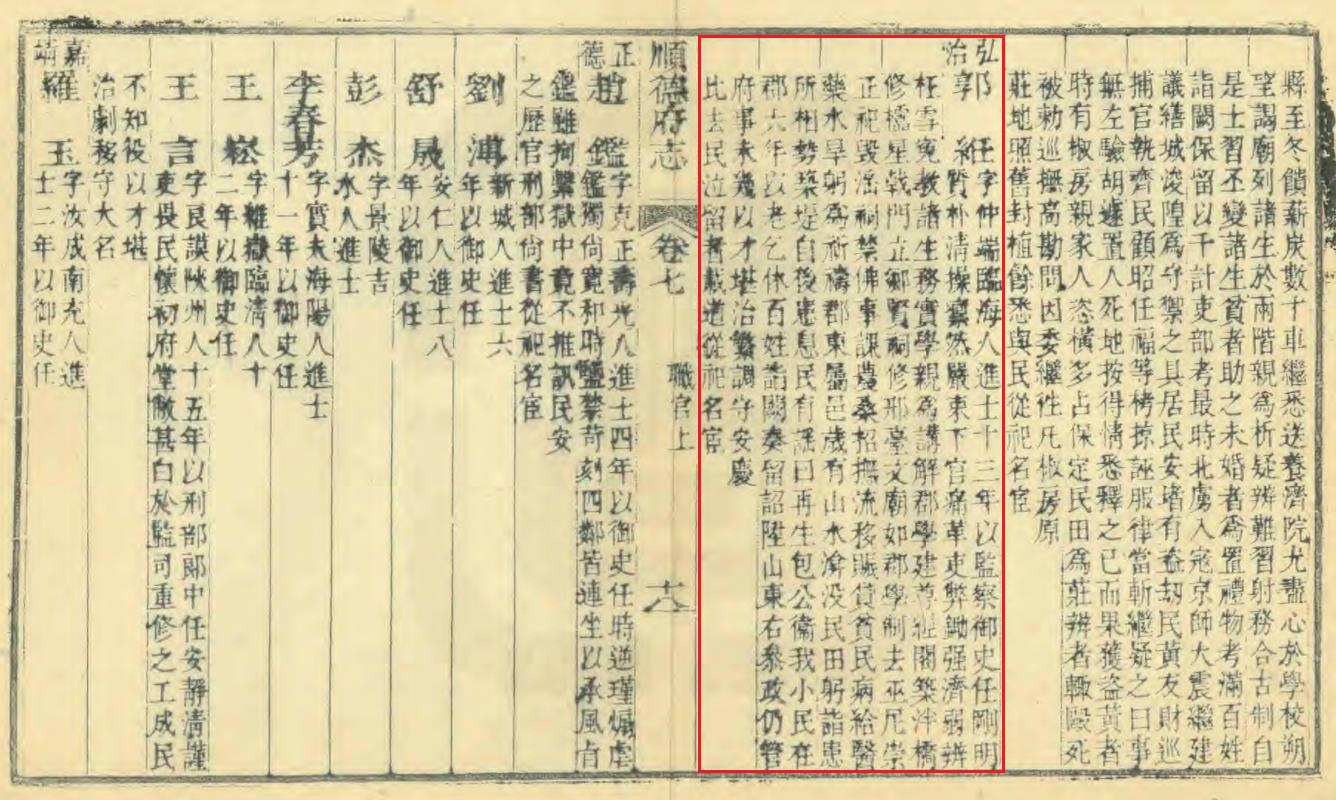 縣至冬饋薪炭數十車繼悉送養濟院尤盡心於學校朔
望謁廟列諸生於兩階親為析疑辨難習射務合古制自
是士習丕變諸生貧者助之未婚者為置禮物考滿百姓
詣闕保留以千計吏部考最時北虜入寇京師大震繼建
議繕城浚隍為守禦之具居民安堵有盜劫民黃友財巡
捕官執齊民顧昭任福等栲掠誣服律當斬繼疑之曰事
無左驗胡遽置人死地按得情悉釋之已而果獲盜黃者
時有椒房親家人恣橫多占保定民田為莊辨者輒毆死
被勅巡撫高勘問因委繼性凡椒房原
莊地照舊封植餘悉與民從祀名宦
弘治
郭 紝
字仲端臨海人進士十三年以監察御史任剛明
質朴清操凜然嚴束下官痛革吏弊鋤强濟弱辨
枉雪冤教諸生務實學親為講解郡學建尊經閣築泮橋
修櫺星戟門立鄉賢祠修邢臺文廟如郡學制去巫尼崇
正祀毀淫祠禁佛事課農桑招撫流移賑貸貧民病給醫
藥水旱躬為祈禱郡東屬邑歲有山水渰没民田躬詣患
所相勢築堤自後患息民有謠曰再生包公衛我小民在
郡六年以老乞休百姓詣闕奏留詔陞山東右叅政仍管
府事未幾以才堪治繁調守安慶
比去民泣留者載道從祀名宦
順德府志
卷七
職官上
十八
正德
趙 鑑
字克正壽光人進士四年以御史任時逆瑾煽虐
鑑獨尚寬和時鹽禁苛刻四鄰皆連坐以承風㫖
鑑雖拘繫獄中竟不推訊民安
之歷官刑部尚書從祀名宦
劉 溥
新城人進士六
年以御史任
舒 晟
安仁人進士八
年以御史任
彭 杰
字景陵吉
水人進士
李春芳
字實夫海陽人進士
十一年以御史任
王 崧
字維嶽臨清人十
二年以御史任
王 言
字良謨陝州人十五年以刑部郎中任安靜清謹
吏畏民懷初府堂敝甚白於監司重修之工成民
不知役以才堪
治劇移守大名
嘉靖
羅 玉
字汝成南充人進
士二年以御史任